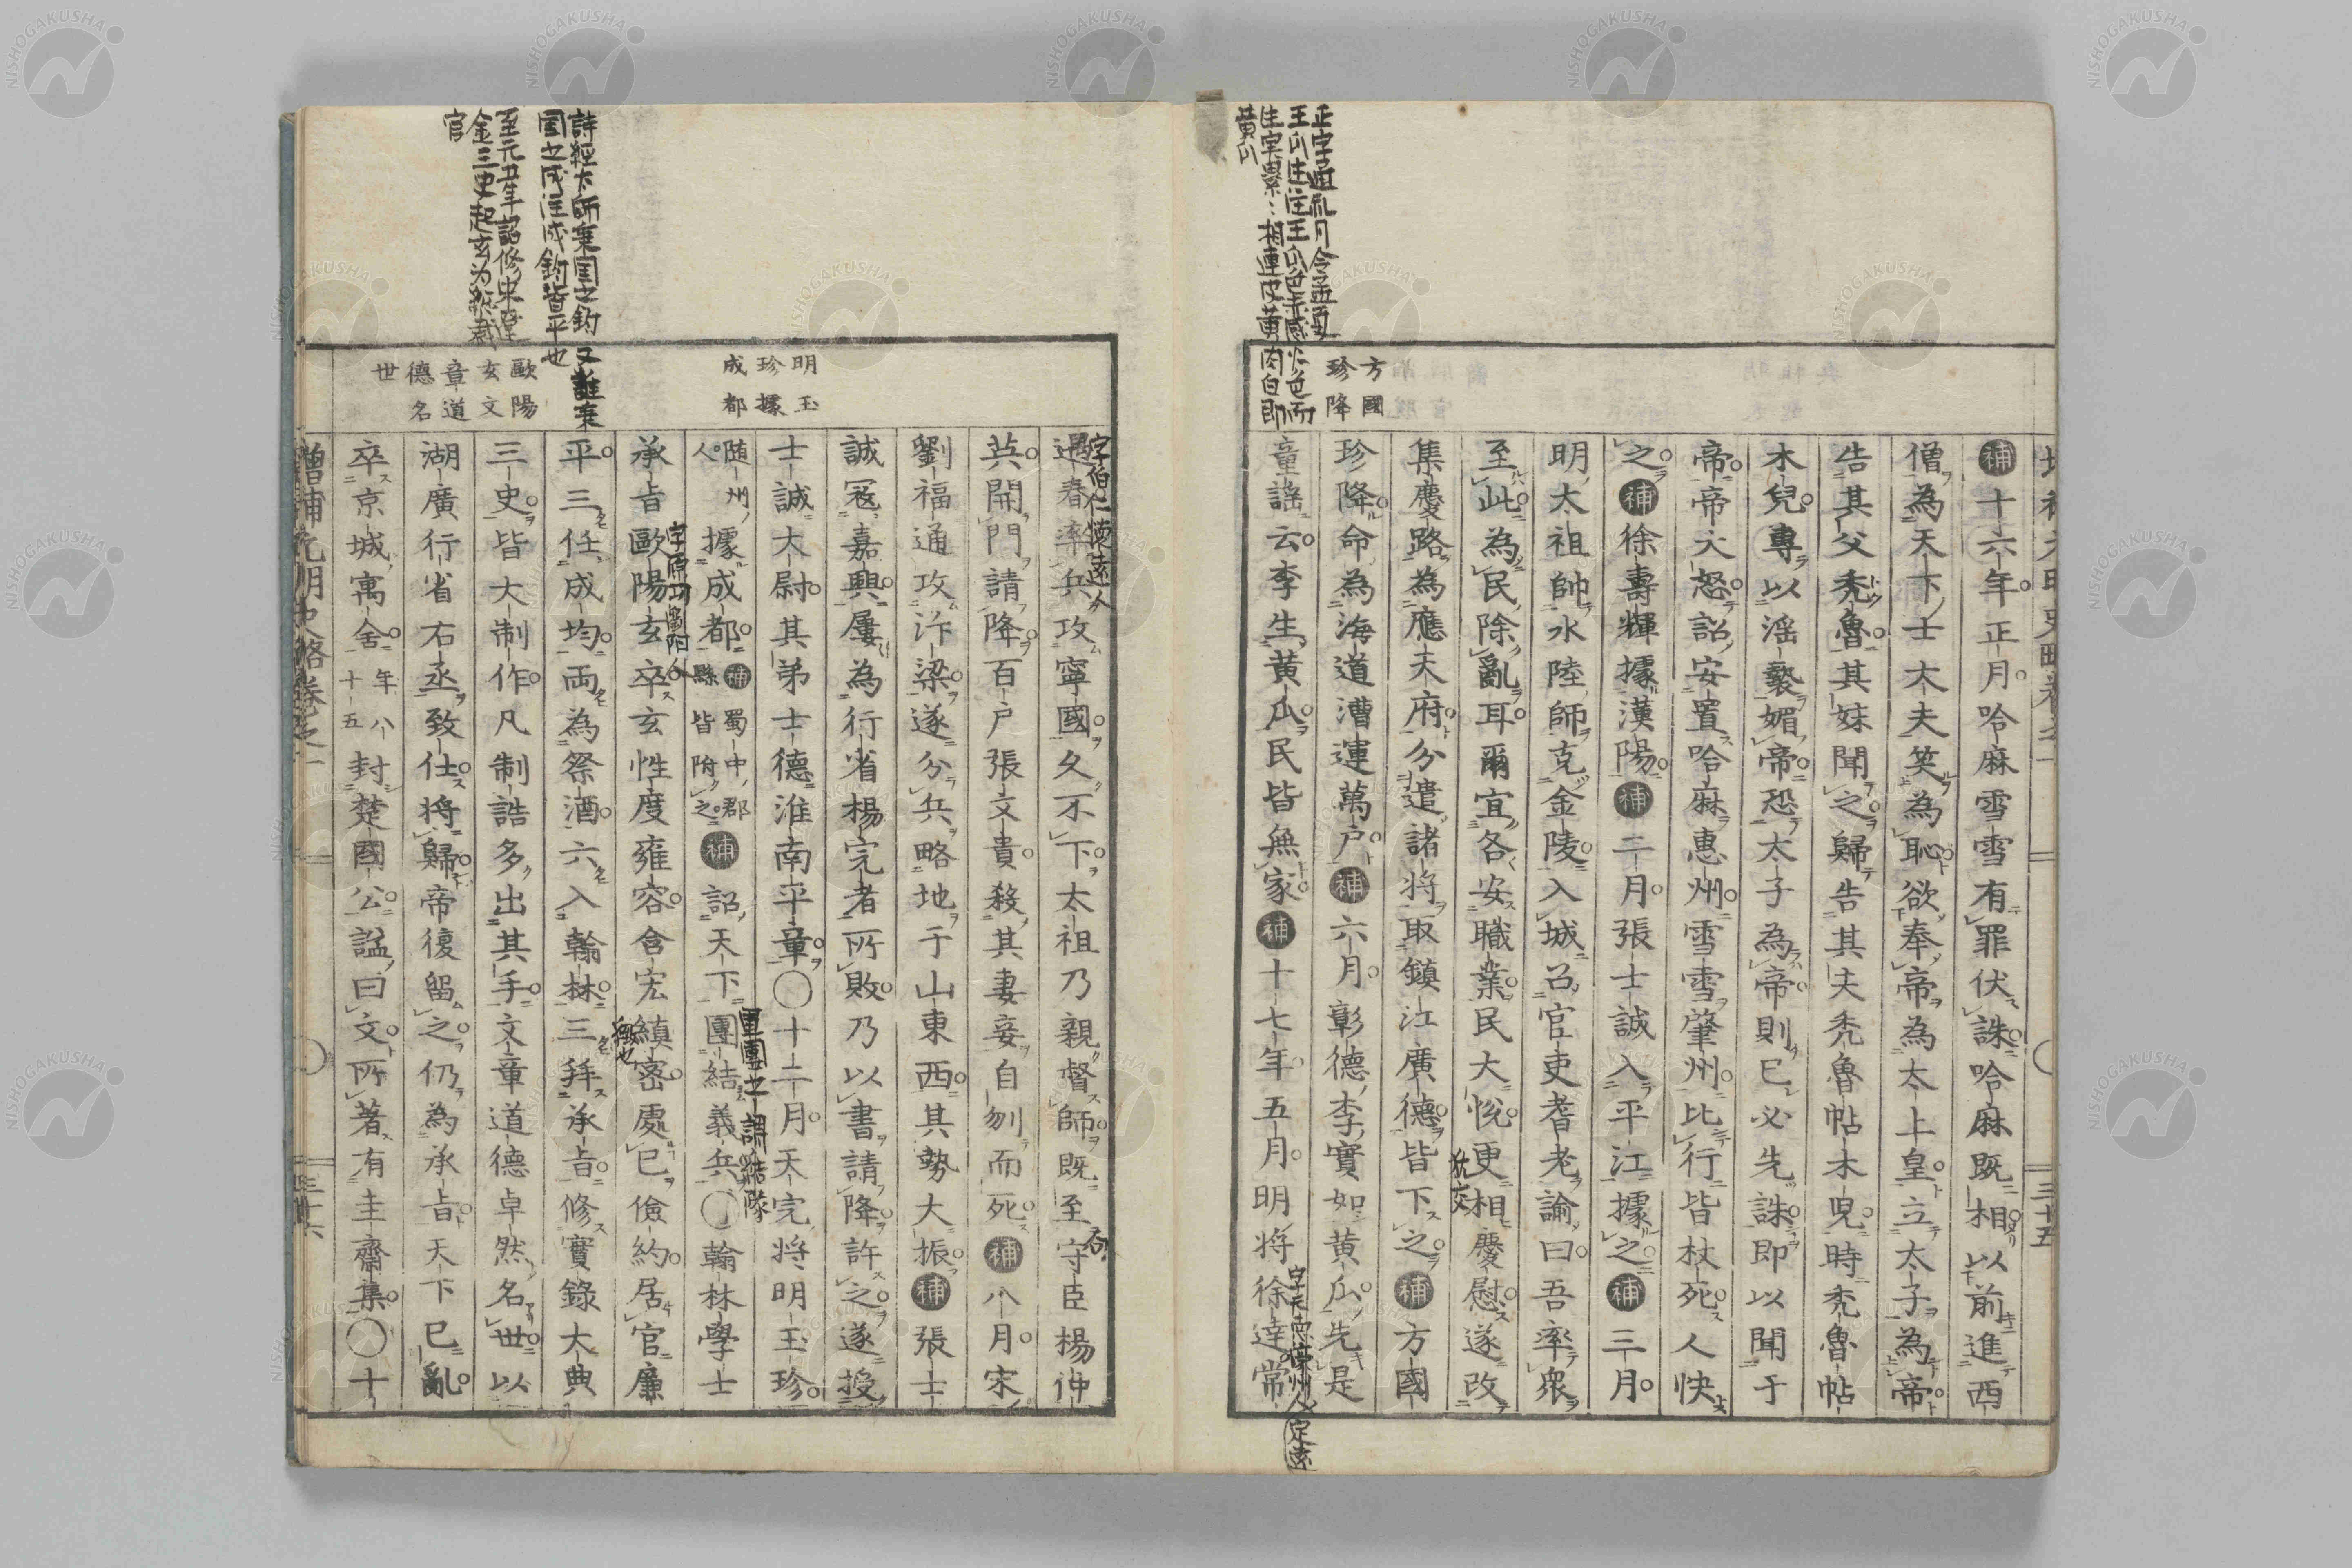 方國
珍降
補十六年正月哈麻雪雪有罪伏誅哈麻既相以前進西
僧為天下士大夫笑為恥欲奉帝為太上皇立太子為帝
告其父禿魯其妹聞之歸告其夫禿魯帖木兒時禿魯帖
木兒專以淫褻媚帝恐太子為帝則已必先誅即以聞于
帝帝大怒詔安置哈麻惠州雪雪肇州比行皆杖死人快
之補徐壽輝據漢陽補二月張士誠入平江據之補三月
明太祖帥水陸師克金陵入城召官吏耆老諭曰吾率衆
至此為民除亂耳爾宜各安職業民大悅更相慶慰遂改
集慶路為應天府分遣諸將取鎮江廣德皆下之補方國
珍降命為海道漕運萬户補六月彰德李實如黃瓜先是
童謠云李生黃瓜民皆無家補十七年五月明將徐達常
三十五
明玉
珍據
成都
歐陽
玄文
章道
德名
世
遇春率兵攻寧國久不下太祖乃親督師既至守臣楊仲
英開門請降百户張文貴殺其妻妾自刎而死補八月宋
劉福通攻汴梁遂分兵略地于山東西其勢大振補張士
誠寇嘉興屢為行省楊完者所敗乃以書請降許之遂授
士誠太尉其弟士德淮南平章〇十二月天完將明玉珍
隨州人據成都補蜀中郡縣皆附之補詔天下團結義兵〇翰林學士
承旨歐陽玄卒玄性度雍容含宏縝密處已儉約居官廉
平三任成均兩為祭酒六入翰林三拜承旨修實錄大典
三史皆大制作凡制誥多出其手文章道德卓然名世以
湖廣行省右丞致仕將歸帝復留之仍為承旨天下已亂
卒京城寓舍年八十五封楚國公諡曰文所著有圭齋集〇十
增補元明史略卷之一
三十六
詩經大師秉国之鈞又誰秉
国之成注成鈞皆平也
至元五年詔修宋遼
金三史起玄为総裁
官